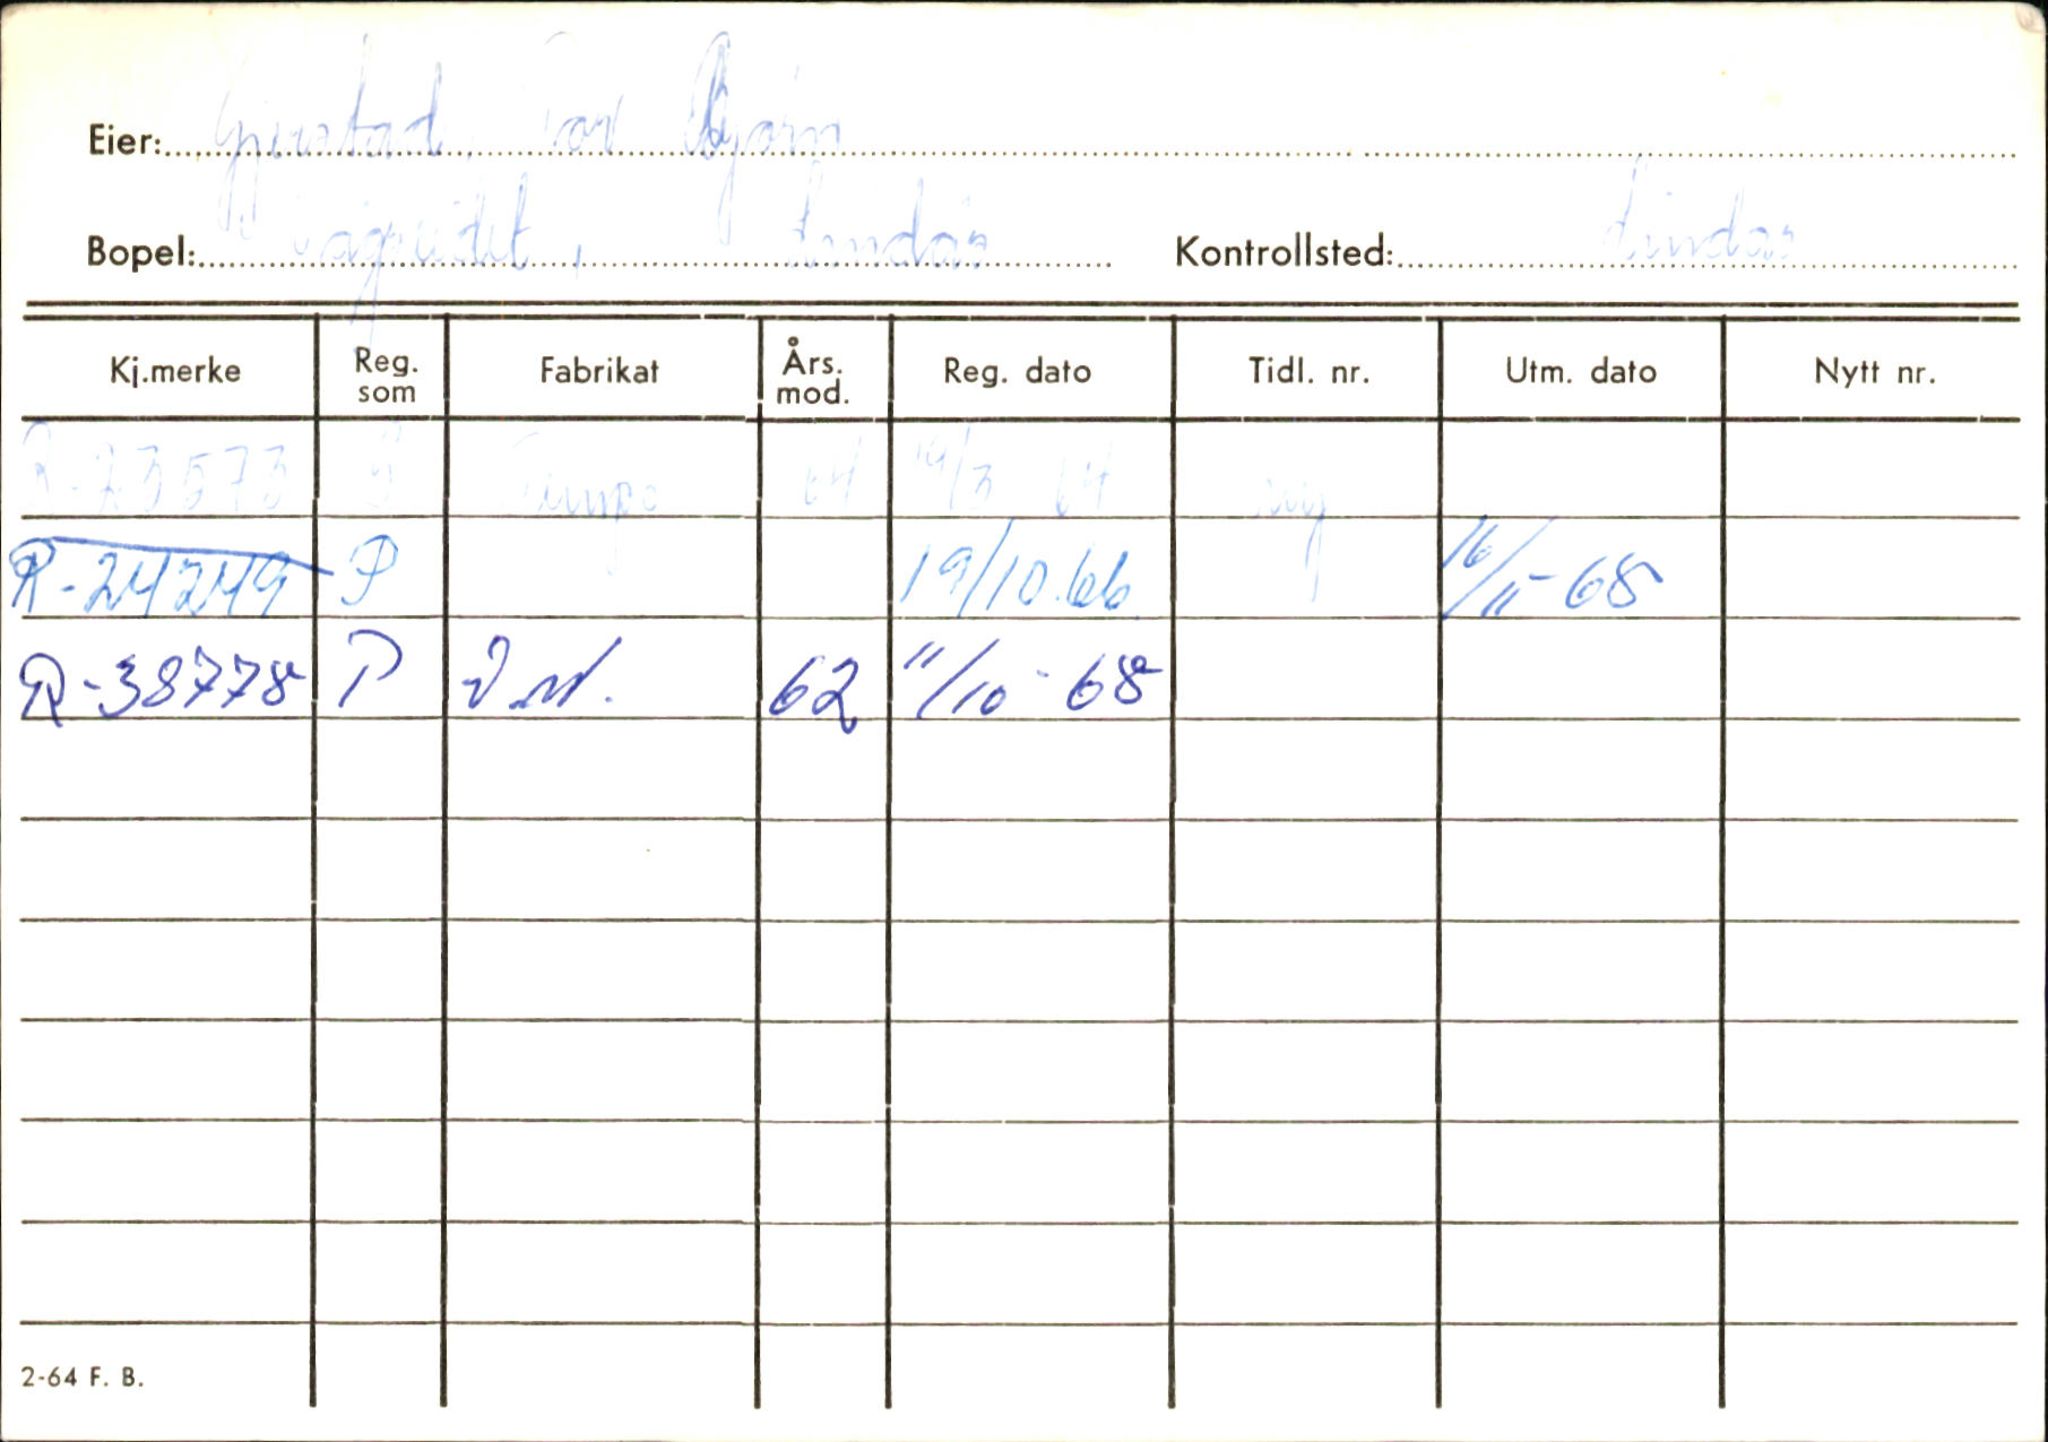 Eier: Gjerstad, Tor Bjørn
Bopel: Vågseidet, Lindås Kontrollsted: Lindås
Kj.merke Reg. som Fabrikat Års. mod. Reg. dato Tidl. nr. Utm. dato Nytt nr.
R-23573 Tempo 64 19/3 64 ny
R-24249 P 19/10.66 16/11-68
R-38778 P 62 11/10-68
2-64 F. B.